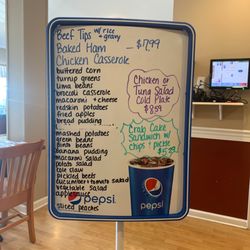 Beef Tips w/ rice + gravy
Baked Ham - $7.99
Chicken Casserole
buttered corn
turnip greens
lima beans
broccoli casserole
macaroni + cheese
redskin potatoes
fried apples
bread pudding
mashed potatoes
green beans
pinto beans
cabbage
macaroni salad
potato salad
cole slaw
pickled beets
cucumber + tomato salad
vegetable salad
applesauce
spiced peaches
Chicken or
Tuna Salad
Cold Plate
$8.59
Crab Cake
Sandwich w/
chips + pickle
pepsi
pepsi